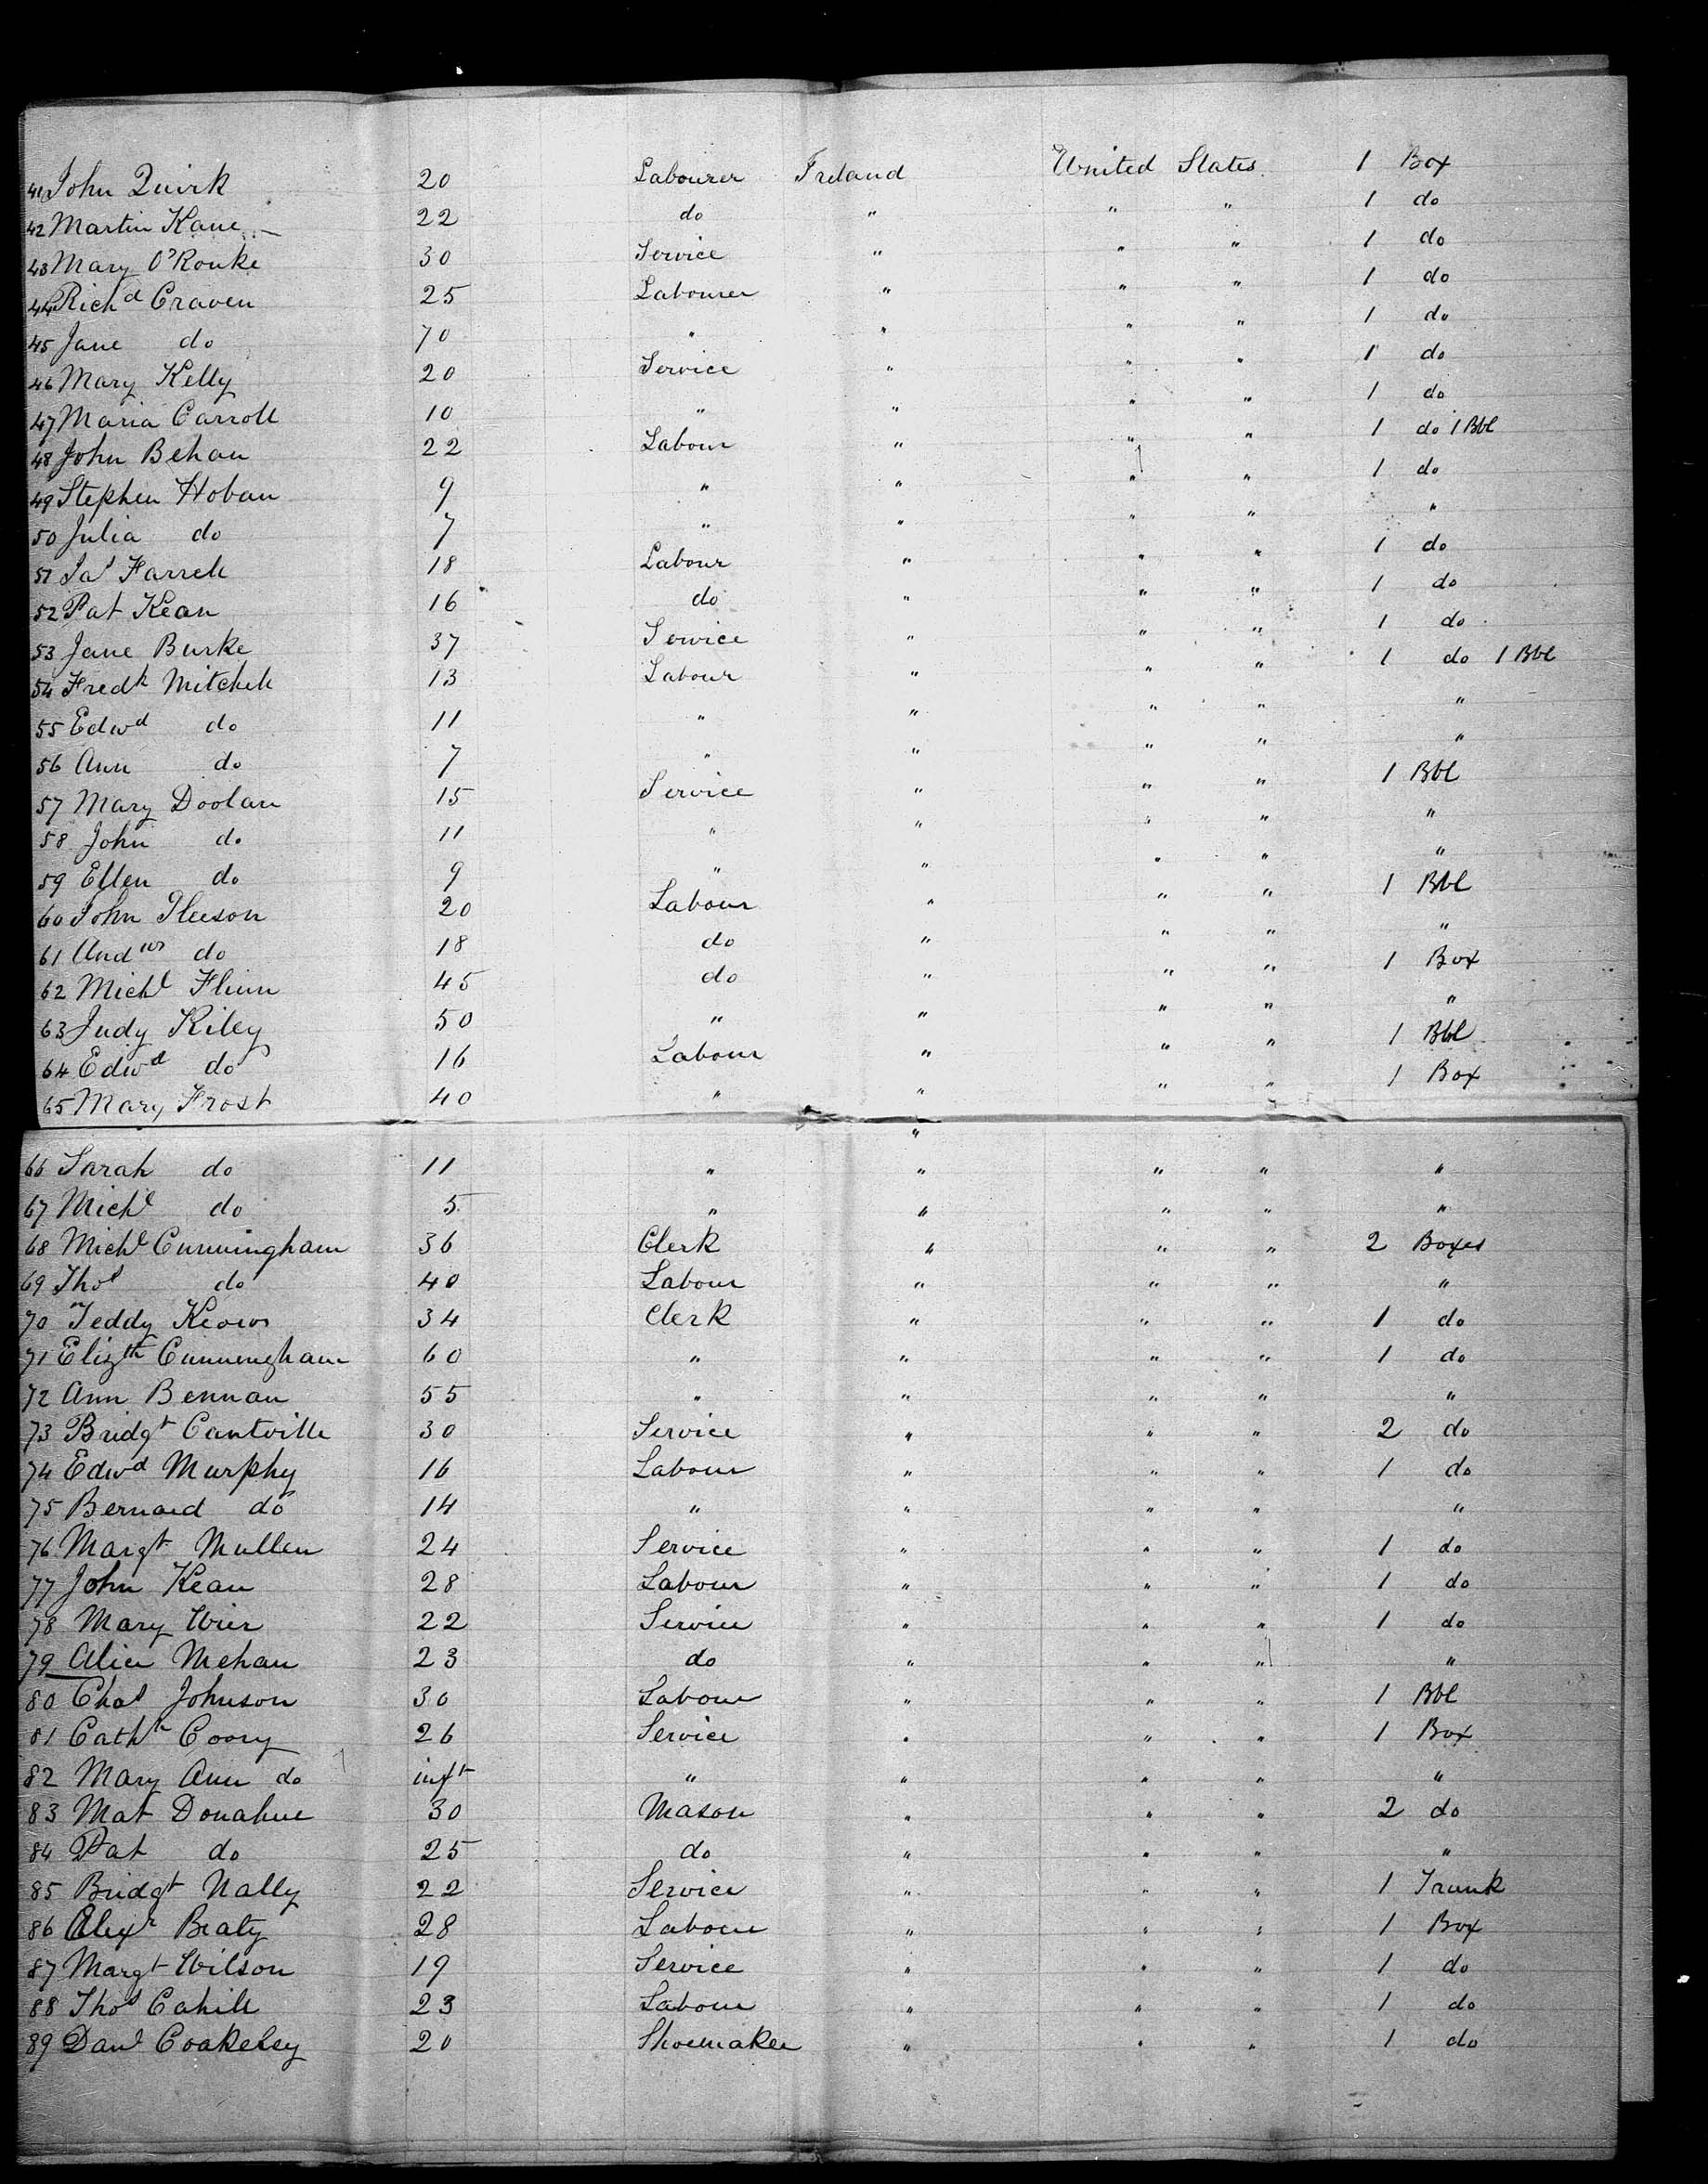 41 John Quirk 20 Labourer Ireland United States 1 Box
42 Martin Kane 22 do " " " 1 do
43 Mary O'Rouke 30 Service " " " 1 do
44 Richd Craven 25 Labourer " " " 1 do
45 Jane do 70 " " " " 1 do
46 Mary Kelly 20 Service " " " 1 do
47 Maria Carroll 10 " " " " 1 do
48 John Behan 22 Labour " " " 1 do 1 Bbl
49 Stephen Hoban 9 " " " " 1 do
50 Julia do 7 " " " " "
51 Jas Farrell 18 Labour " " " 1 do
52 Pat Kean 16 do " " " 1 do
53 Jane Burke 37 Service " " " 1 do
54 Fredk Mitchell 13 Labour " " " 1 do 1 Bbl
55 Edwd do 11 " " " " "
56 Ann do 7 " " " " "
57 Mary Doolan 15 Service " " " 1 Bbl
58 John do 11 " " " " "
59 Ellen do 9 " " " " "
60 John Gleeson 20 Labour " " " 1 Bbl
61 Andw do 18 do " " " "
62 Michl Flinn 45 do " " " 1 Box
63 Judy Riley 50 " " " " "
64 Edwd do 16 Labour " " " 1 Bbl
65 Mary Frost 40 " " " " 1 Box
66 Sarah do 11 " " " " "
67 Michl do 5 " " " " "
68 Michl Cunningham 36 Clerk " " " 2 Boxes
69 Thos do 40 Labour " " " "
70 Teddy 34 Clerk " " " 1 do
71 Elizth Cunningham 60 " " " " 1 do
72 Ann Bennan 55 " " " " "
73 Bridgt Cantville 30 Service " " " 2 do
74 Edwd Murphy 16 Labour " " " 1 do
75 Bernard do 14 " " " " "
76 Margt Mullen 24 Service " " " 1 do
77 John Kean 28 Labour " " " 1 do
78 Mary Wier 22 Service " " " 1 do
79 Alice Mehan 23 do " " " "
80 Chas Johnson 30 Labour " " " 1 Bbl
81 Cathn Coory 26 Service " " " 1 Box
82 Mary Ann do inft " " " " "
83 Mat Donahue 30 Mason " " " 2 do
84 Pat do 25 do " " " "
85 Bridgt Nally 22 Service " " " 1 Trunk
86 Alexr Braty 28 Labour " " " 1 Box
87 Margt Wilson 19 Service " " " 1 do
88 Thos Cahill 23 Labour " " " 1 do
89 Danl Coakeley 20 Shoemaker " " " 1 do